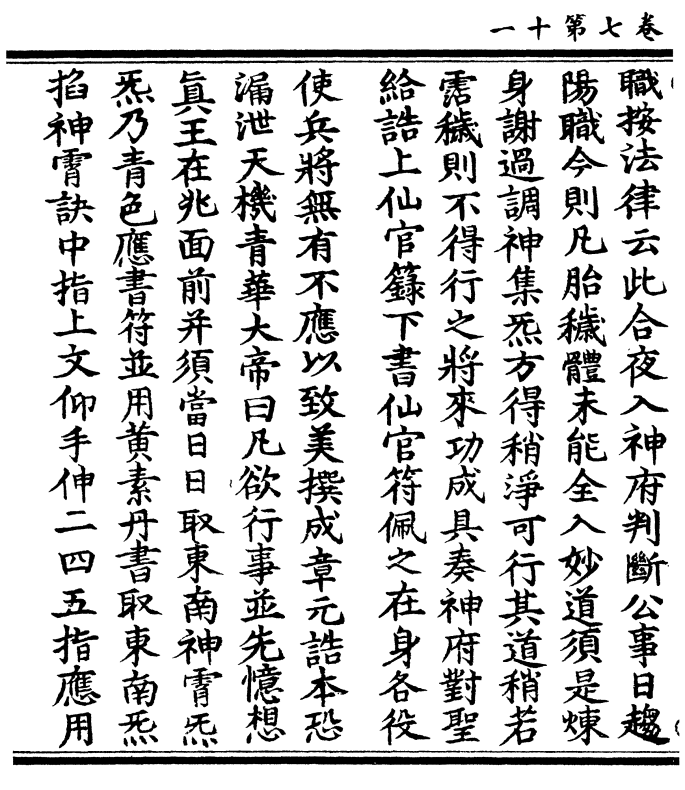 卷七第十一
職按法律云此合夜入神府判斷公事日趨
陽職今則凡胎穢體未能全入妙道須是煉
身謝過調神集炁方得稍淨可行其道稍若
露穢則不得行之將來功成具奏神府對聖
給誥上仙官籙下書仙官符佩之在身各役
使兵將無有不應以致美撰成章元誥本恐
漏泄天機青華大帝曰凡欲行事並先憶想
眞王在兆面前并須當日日取東南神霄炁
炁乃青色應書符並用黄素丹書取東南炁
掐神霄訣中指上文仰手伸二四五指應用